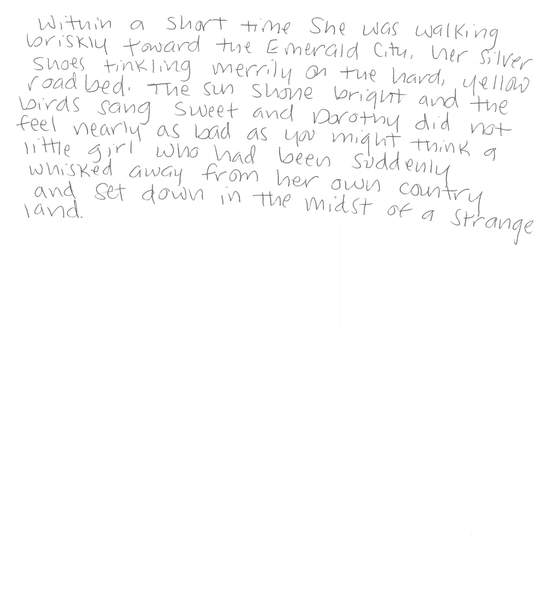 Within a short time she was walking
briskly toward the Emerald City, her Silver
Shoes tinkling merrily on the hard, yellow
roadbed. The sun shone bright and the
birds sang sweet and Dorothy did not
feel nearly as bad as you might think a
little girl who had been suddenly
whisked away from her own country
and set down in the midst of a strange
land.